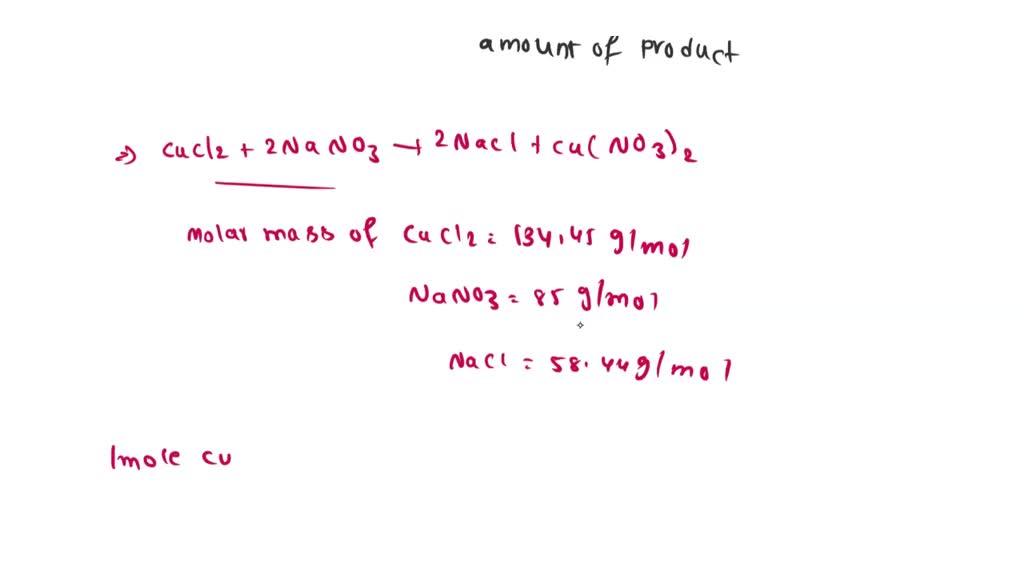 amount of product
=> CuCl2 + 2NaNO3 → 2NaCl + Cu(NO3)2
Molar mass of CuCl2 = 134.45 g/mol
NaNO3 = 85 g/mol
NaCl = 58.44 g/mol
1mole cu